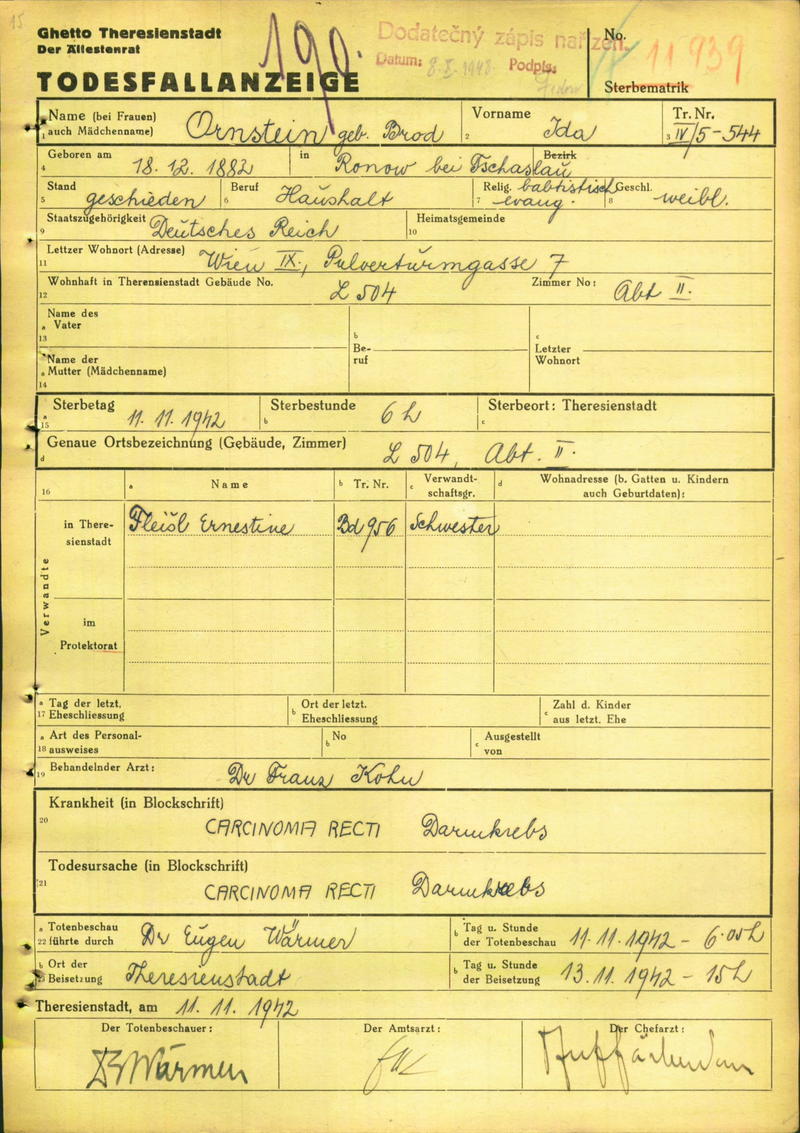 15
Ghetto Theresienstadt
Der Ältestenrat
TODESFALLANZEIGE
190.
Dodatečný zápis nařízen.
Datum: Podpis:
No. 11939
Sterbematrik
Name (bei Frauen) Ornstein geb. Brod Vorname Ida Tr. Nr.
1 auch Mädchenname) 2 3 IV/5-544
Geboren am 18.12.1882 in Ronow bei Tschaslau Bezirk
4
Stand geschieden Beruf Haushalt Relig. babtistisch evang. Geschl. weibl.
5 6 7 8
Staatszugehörigkeit Deutsches Reich Heimatsgemeinde
9 10
Lettzer Wohnort (Adresse) Wien IX., Pulverturmgasse 7
11
Wohnhaft in Therensienstadt Gebäude No. L 504 Zimmer No: Abt II.
12
Name des
a Vater b c
13 Be- Letzter
Name der ruf Wohnort
a Mutter (Mädchenname)
14
Sterbetag 11.11.1942 Sterbestunde 6 h Sterbeort: Theresienstadt
a 15 b c
Genaue Ortsbezeichnung (Gebäude, Zimmer) L 504, Abt. II.
d
16 a Name b Tr. Nr. c Verwandt- schaftsgr. d Wohnadresse (b. Gatten u. Kindern auch Geburtdaten):
Verwandte
in There- sienstadt Fleišl Ernestine Bd 956 Schwester
im
Protektorat
a Tag der letzt. b Ort der letzt. Zahl d. Kinder
17 Eheschliessung Eheschliessung c aus letzt. Ehe
a Art des Personal- b No c Ausgestellt
18 ausweises von
19 Behandelnder Arzt: Dr Franz Kohn
Krankheit (in Blockschrift)
20 CARCINOMA RECTI Darmkrebs
Todesursache (in Blockschrift)
21 CARCINOMA RECTI Darmkrebs
a Totenbeschau Dr Eugen Wärmer b Tag u. Stunde
22 führte durch der Totenbeschau 11.11.1942 - 6.05h
b Ort der Theresienstadt b Tag u. Stunde
23 Beisetzung der Beisetzung 13.11.1942 - 15h
Theresienstadt, am 11.11.1942
Der Totenbeschauer: Der Amtsarzt: Der Chefarzt:
Dr Wärmer